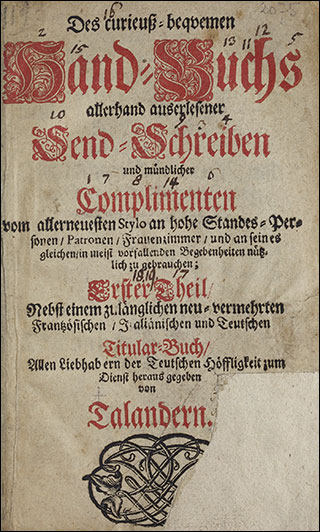 Des curieuß-beqvemen
Hand-Buchs
allerhand auserlesener
Send-Schreiben
und mündlicher
Complimenten
vom allerneuesten Stylo an hohe Standes-Per-
sonen / Patronen / Frauenzimmer / und an seines
gleichen / in meist vorfallenden Begebenheiten nütz-
lich zu gebrauchen;
Erster Theil /
Nebst einem zulänglichen neu-vermehrten
Frantzösischen / Italiänischen und Teutschen
Titular-Buch /
Allen Liebhabern der Teutschen Höffligkeit zum
Dienst heraus gegeben
von
Talandern.